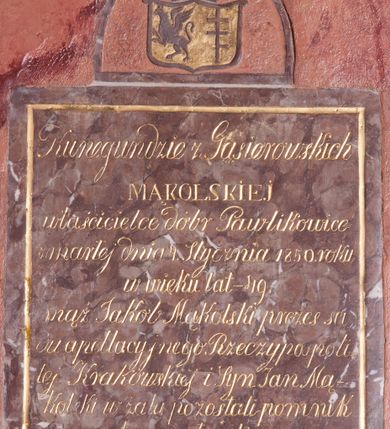 Kunegundzie z Gąsiorowskich
MĄKOLSKIEJ
właścicielce dóbr Pawlikowice
zmarłej dnia 4 Stycznia 1850 roku
w wieku lat 49.
mąż Jakób Mąkolski prezes są-
du apellacyjnego Rzeczypospoli-
tej Krakowskiej i Syn Jan Mą-
kolski w żalu pozostali pomnik